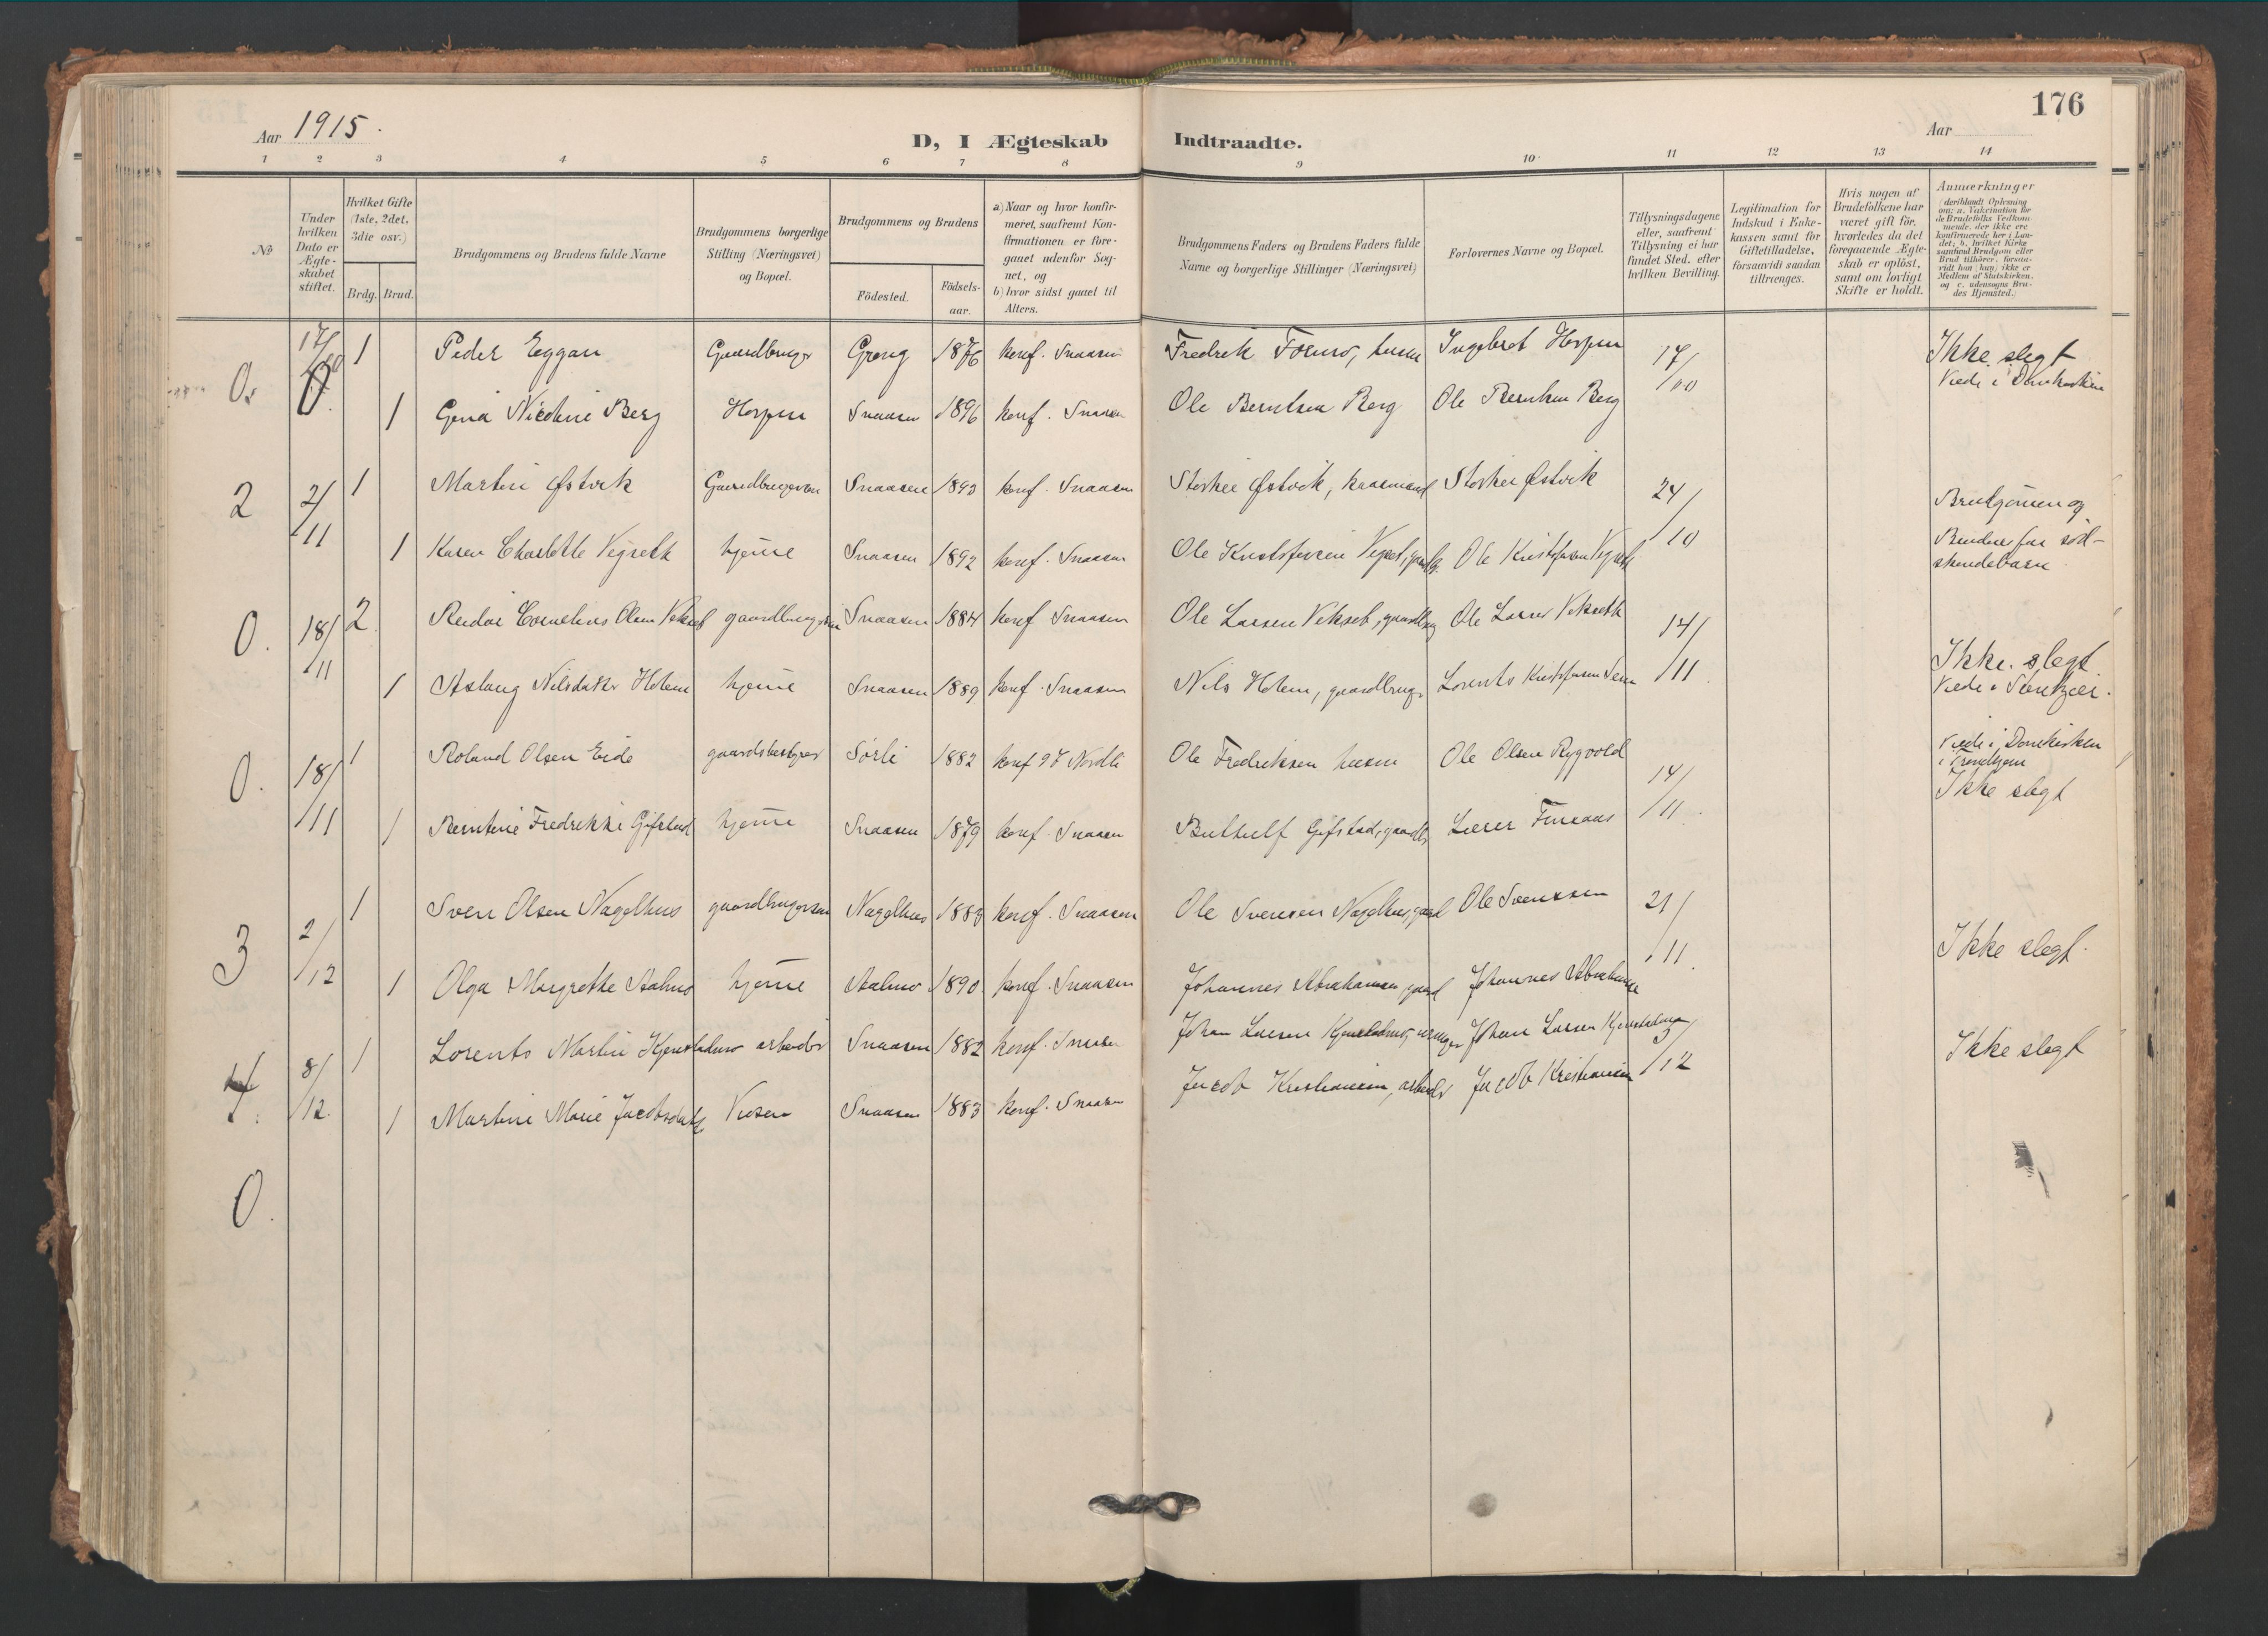 176
Aar 1915. D, I Ægteskab Indtraadte. Aar
1 2 3 4 5 6 7 8 9 10 11 12 13 14
№
Under hvilken Dato er Ægteskabet stiftet.
Hvilket Gifte (1ste, 2det, 3die osv.)
Brdg. Brud.
Brudgommens og Brudens fulde Navne
Brudgommens borgerlige Stilling (Næringsvei) og Bopæl.
Brudgommens og Brudens
Födested. Födsels-aar.
a) Naar og hvor konfirmeret, saafremt Konfirmationen er foregaaet udenfor Sognet, og
b) hvor sidst gaaet til Alters.
Brudgommens Faders og Brudens Faders fulde Navne og borgerlige Stillinger (Næringsvei)
Forlovernes Navne og Bopæl.
Tillysningsdagene eller, saafremt Tillysning ei har fundet Sted, efter hvilken Bevilling.
Legitimation for Indskud i Enkekassen samt for Giftetilladelse, forsaavidt saadan tiltrænges.
Hvis nogen af Brudefolkene har været gift för, hvorledes da det foregaaende Ægteskab er oplöst, samt om lovligt Skifte er holdt.
Anmerkninger (deriblandt Oplysning om: a. Vakcination for de Brudefolks Vedkommende, der ikke ere konfirmerede her i Landet; b. hvilket Kirkesamfund Brudgom eller Brud tilhører, forsaavidt han (hun) ikke er Medlem af Statskirken, og c. udensogns Brudes Hjemsted.)
0. 17/10 1 Peder Eggan Gaardbruger Grong 1876 konf. Snaasen Fredrik Formo, husm Ingebret Horjem 17/10 Ikke slegt
Viede i Domkirken
1 Gina Nicoline Berg Horjem Snaasen 1896 konf. Snaasen Ole Berntsen Berg Ole Berntsen Berg
2 2/11 1 Martin Østvik Gaardbrugersøn Snaasen 1893 konf. Snaasen Østvik, Østvik 24/10 Brudgommen og
1 Karen Charlotte Vegseth hjemme Snaasen 1892 konf. Snaasen Ole Kristofersen Ole Kristofersen Vegseth Bruden er sød-
skendebarn
0. 18/11 2 Reidar Cornelius Olsen gaardbruger Snaasen 1884 konf Snaasen Ole Larsen Vekset, gaardbrug Ole Larsen Vekseth 14/11 Ikke slegt
1 Aslaug Nilsdatter Holem hjemme Snaasen 1889 konf. Snaasen Nils Holem, gaardbruger Lorents Kristofersen Viede i Stenkjær.
0. 18/11 1 Roland Olsen Eide gaardsbestyrer Sørli 1882 konf 97 Nordli Ole Fredriksen husm Ole Olsen Rygvold 14/11 Viede i Domkirken
i Trondhjem
Ikke slegt
1 Berntine Fredrikke Gifstad hjemme Snaasen 1879 konf. Snaasen Gifstad, gaardbr Finsaas
3 2/12 1 Sven Olsen Nagelhus gaardbrugersøn Nagelhus 1883 konf. Snaasen Ole Svensen Nagelhus, gaard Ole Svenssen 21/11 Ikke slegt.
1 Olga Margrethe Aalmo hjemme Aalmo 1890 konf. Snaasen Johannes Abrahamsen, gaard Johannes Abrahamsen
4. 8/12 1 Lorents Martin Kjenstadmo arbeider Snaasen 1882 konf. Snaasen Johan Larsen Kjenstadmo, Johan Larsen Kjenstadmo 3/12 Ikke slegt
1 Martine Marie Jacobsdatter Snaasen 1883 konf. Snaasen Jacob Kristiansen, arbeider Jacob Kristiansen
0.